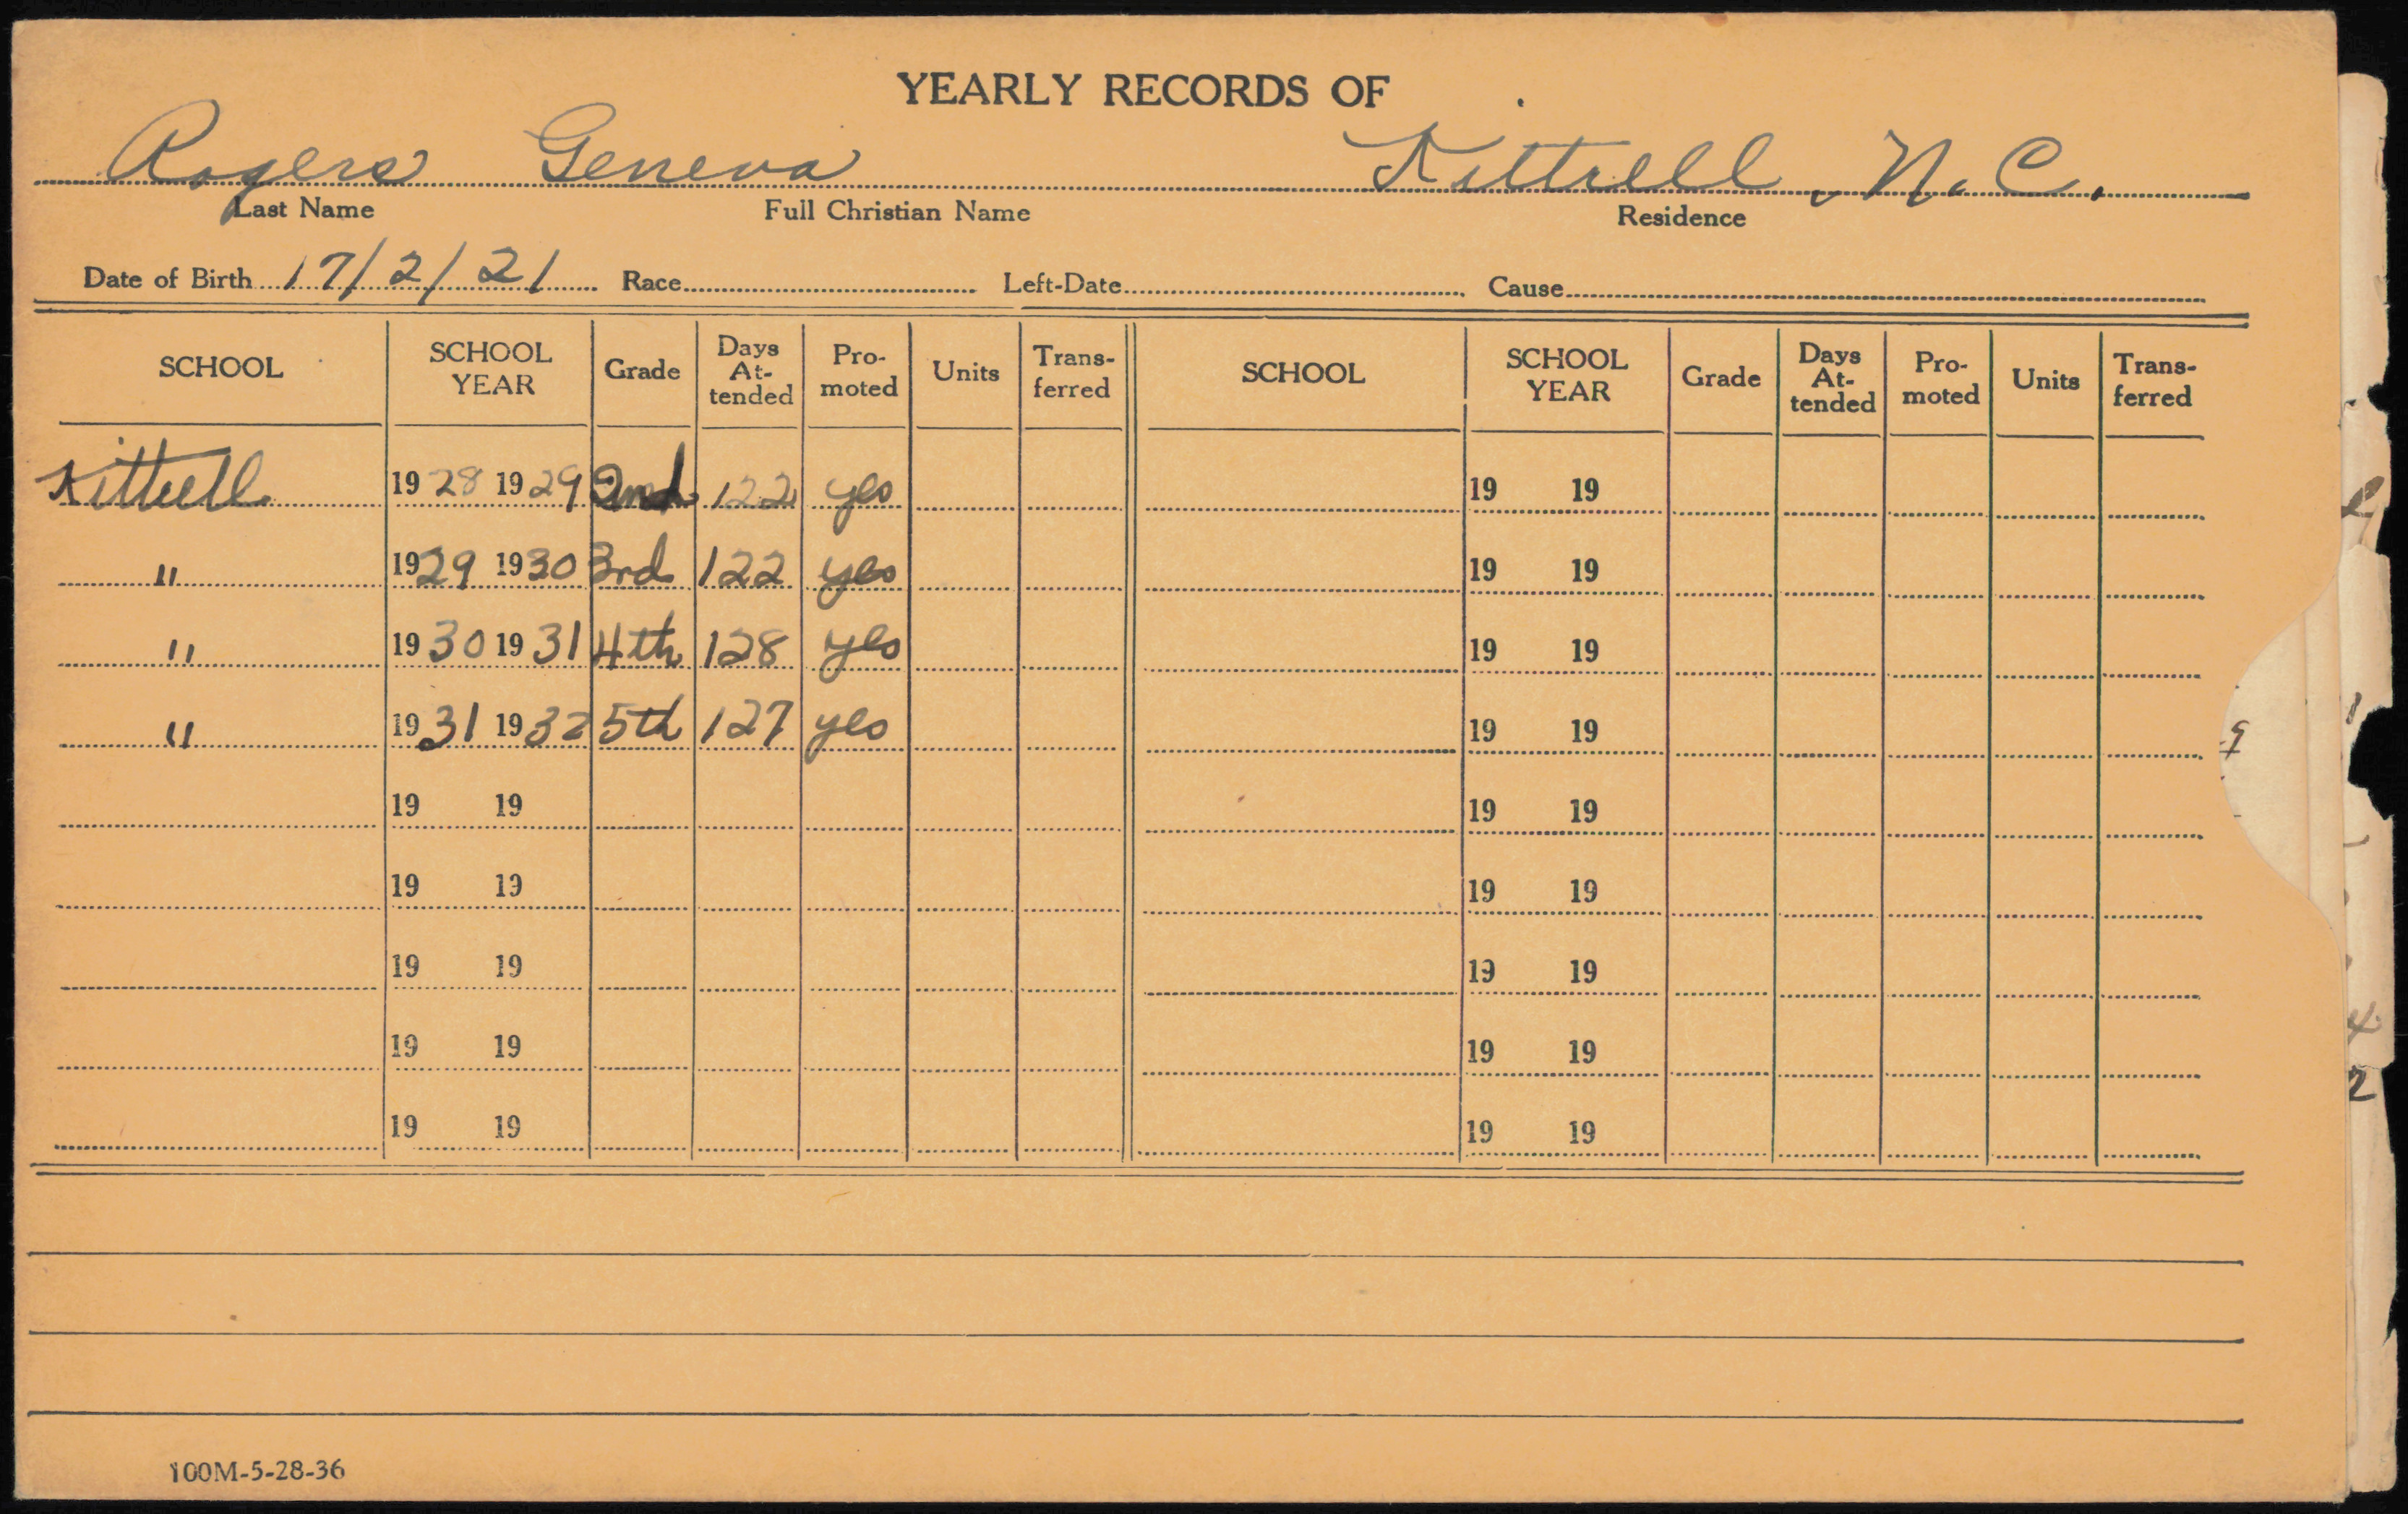 YEARLY RECORDS OF
Rogers Geneva Kittrell, N.C.
Last Name Full Christian Name Residence
Date of Birth 17/2/21 Race Left-Date Cause
SCHOOL SCHOOL YEAR Grade Days At-tended Pro-moted Units Trans-ferred SCHOOL SCHOOL YEAR Grade Days At-tended Pro-moted Units Trans-ferred
Kittrell 1928 1929 2nd 122 yes 19 19
" 1929 1930 3rd 122 yes 19 19
" 1930 1931 4th 128 yes 19 19
" 1931 1932 5th 127 yes 19 19
19 19 19 19
19 19 19 19
19 19 19 19
19 19 19 19
19 19 19 19
100M-5-28-36